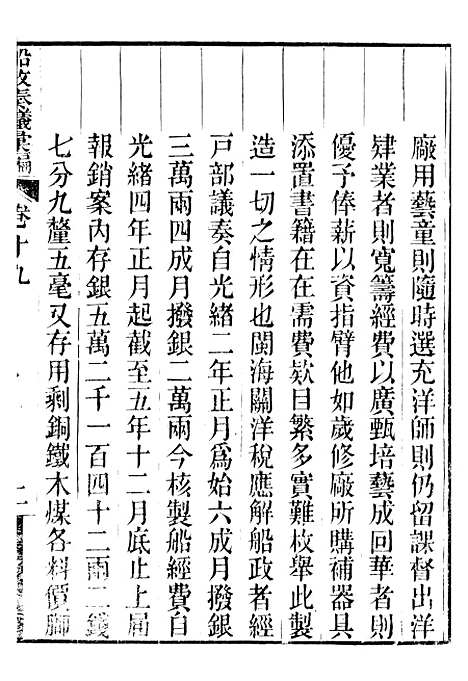 廠用藝童則隨時選充洋師則仍留課督出洋
肄業者則寬籌經費以廣甄培藝成回華者則
優予俸薪以資指臂他如歲修廠所購補器具
添置書籍在在需費欵目繁多實難枚舉此製
造一切之情形也閩海關洋稅應解船政者經
戶部議奏自光緒二年正月爲始六成月撥銀
三萬兩四成月撥銀二萬兩今核製船經費自
光緒四年正月起截至五年十二月底止上屆
報銷案內存銀五萬二千一百四十二兩二錢
七分九釐五毫又存用剩銅鐵木煤各料價腳
船政奏議彙編 卷十九